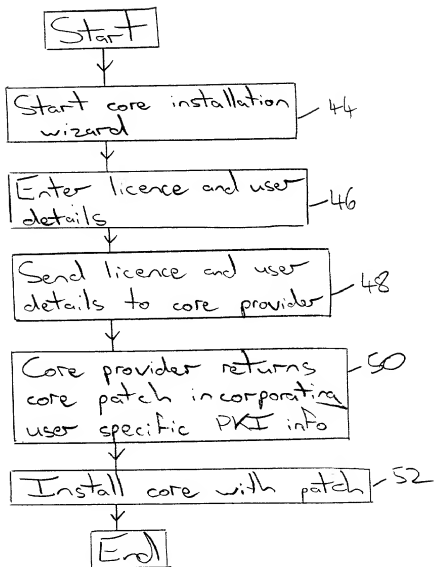 Start
Start core installation 44
wizard
Enter licence and user 46
details
Send licence and user
details to core provider 48
Core provider returns 50
core patch incorporating
user specific PKI info
Install core with patch 52
End